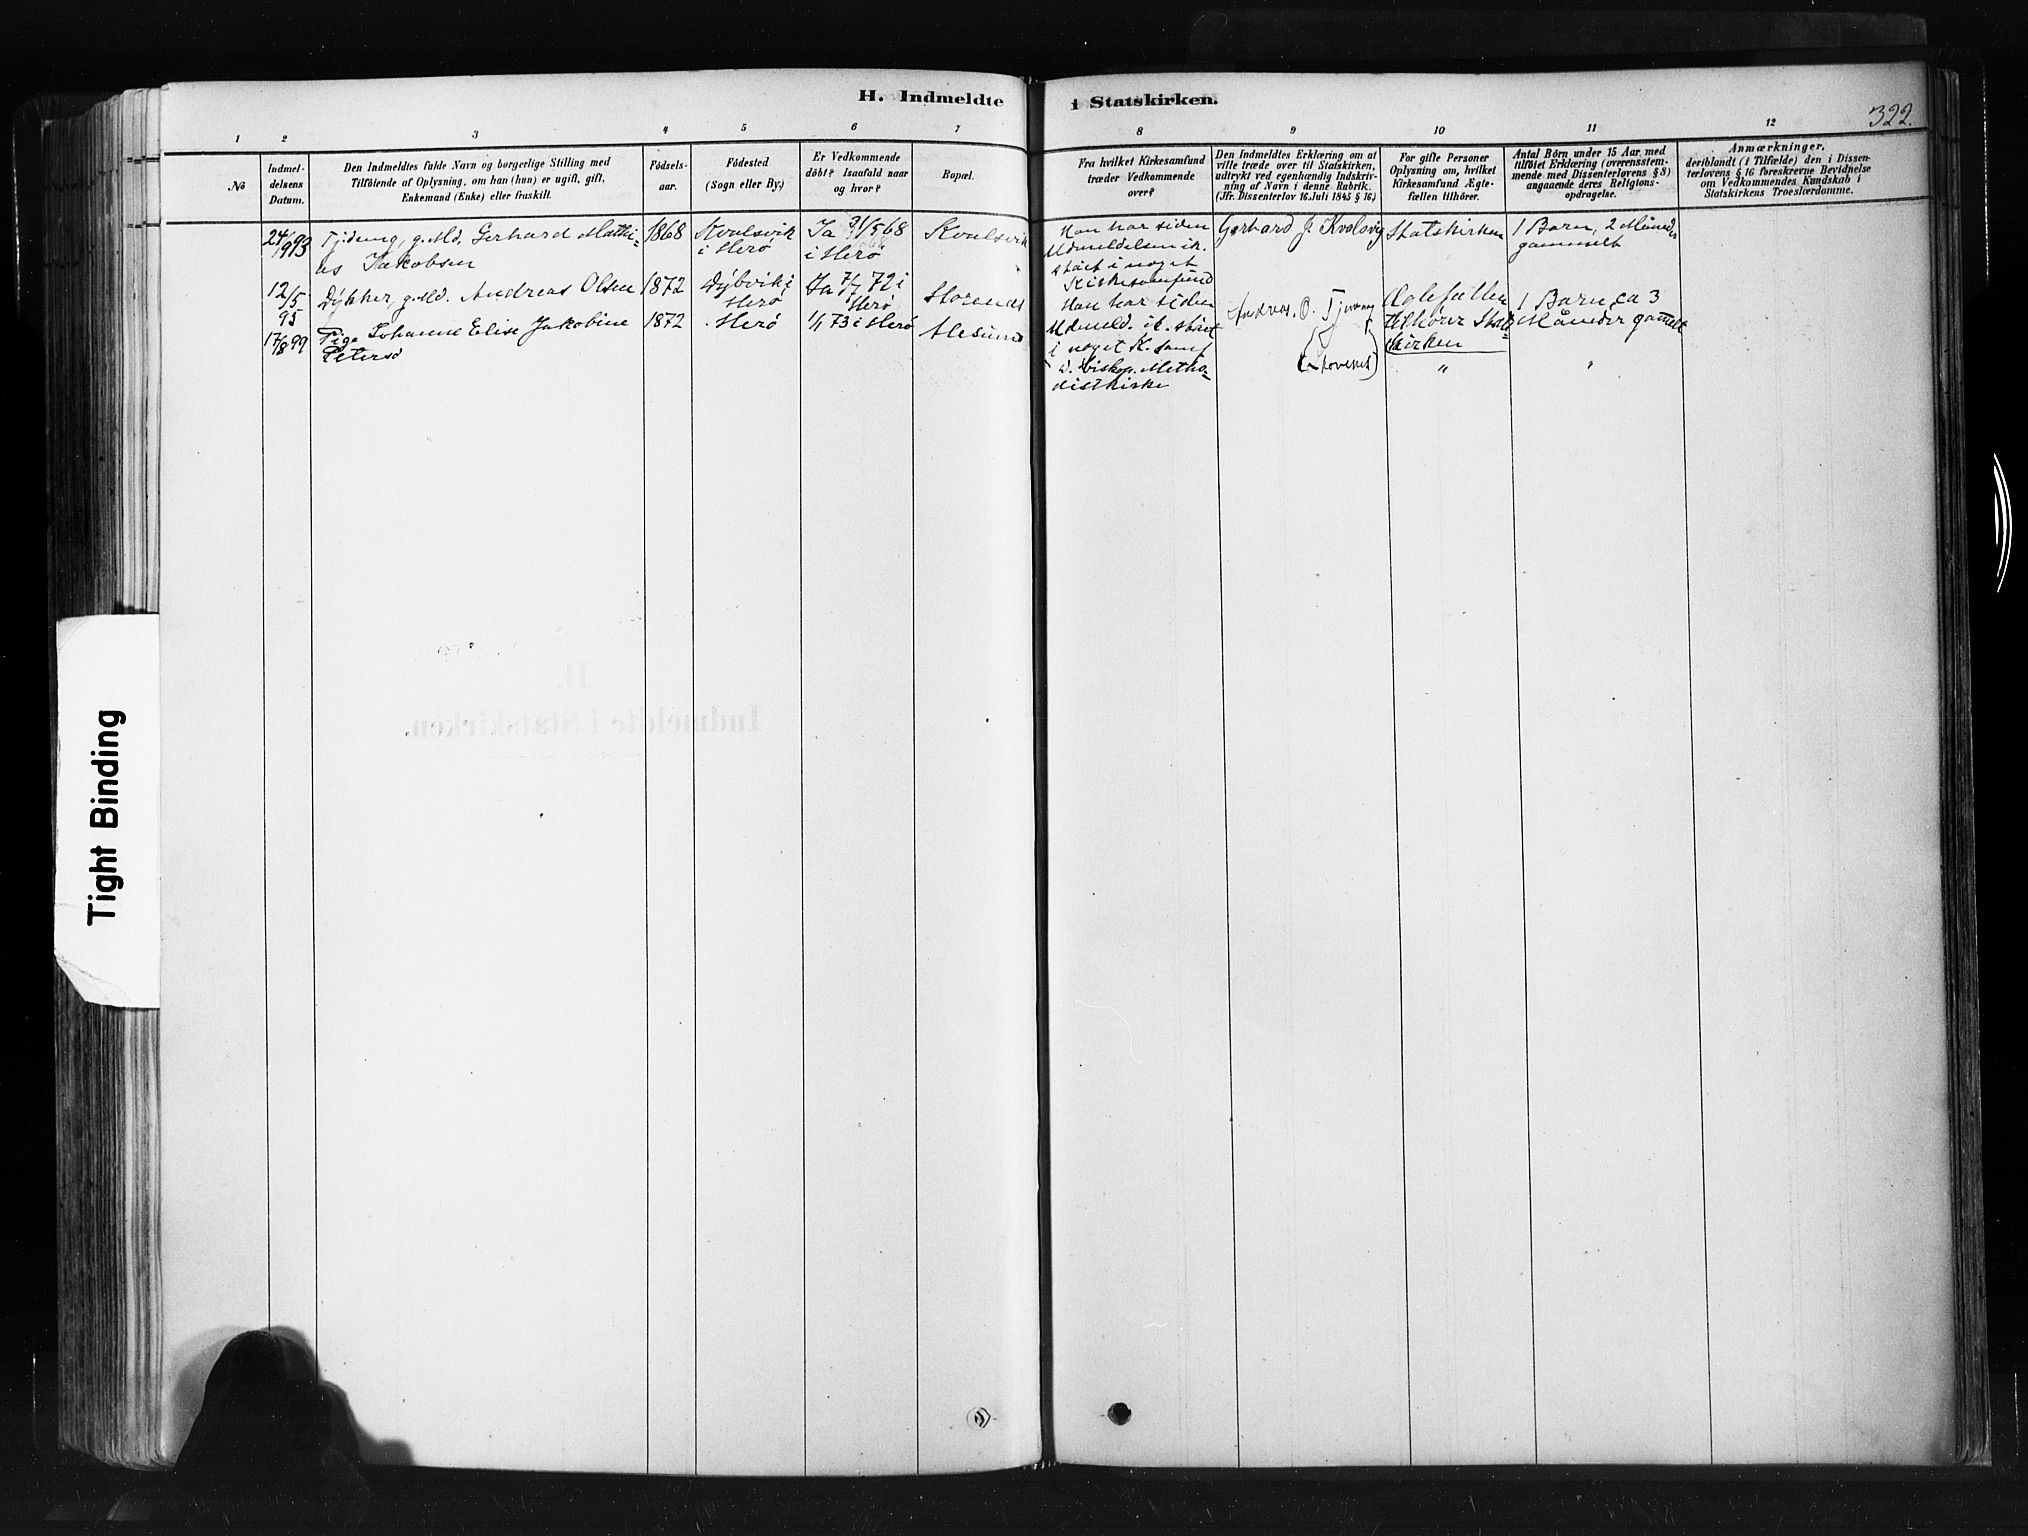 H. Indmeldte i Statskirken.
322.
1 2 3 4 5 6 7 8 9 10 11 12
No
Indmel-
delsens
Datum.
Den Indmeldtes fulde Navn og borgerlige Stilling med
Tilföiende af Oplysning, om han (hun) er ugift, gift,
Enkemand (Enke) eller fraskilt.
Födsels-
aar.
Födested
(Sogn eller By.)
Er Vedkommende
döbt? Isaafald naar
og hvor?
Bopæl.
Fra hvilket Kirkesamfund
træder Vedkommende
over?
Den Indmeldtes Erklæring om at
ville træde over til Statskirken,
udtrykt ved egenhændig Indskriv-
ning af Navn i denne Rubrik.
(Jfr. Dissenterlov 16. Juli 1845 § 16.)
For gifte Personer
Oplysning om, hvilket
Kirkesamfund Ægte-
fællen tilhörer.
Antal Börn under 15 Aar, med
tilföiet Erklæring (overensstem-
mende med Dissenterlovens § 8)
angaaende deres Religions-
opdragelse.
Anmærkninger,
deriblandt (i Tilfælde) den i Dissen-
terlovens § 16 foreskrevne Bevidnelse
om Vedkommendes Kundskab i
Statskirkens Troeslærdomme.
24/9 93
g. Md. Gerhard Mathi-
as Jakobsen
1868
Kvalsvik
i Herö
Ja 31/5 68
i Herö
Kvalsvik
Han har siden
Udmeldelsen ik.
stået i noget
Kirkesamfund
Gerhard J. Kvalsvig
Statskirken
1 Barn, 2 Måneder
gammelt
12/5
95
Dykker, g. Md. Andreas Olsen
1872
Dybvik i
Herö
Ja 7/7 72 i
Herö
Storanes
Han har siden
Udmeld. ik. stået
i noget K. samf
Andreas. O.
Ægtefællen
tilhörer Stats
kirken
1 Barn, ca 3
Måneder gamelt
17/8 99
Pige Johanne Elise Jakobine
Petersö
1872
Herö
1/1 73 i Herö
Alesund
d. biskop. Metho-
distkirke
"
"
H.
Indmeldte i Statskirken.
Tight Binding